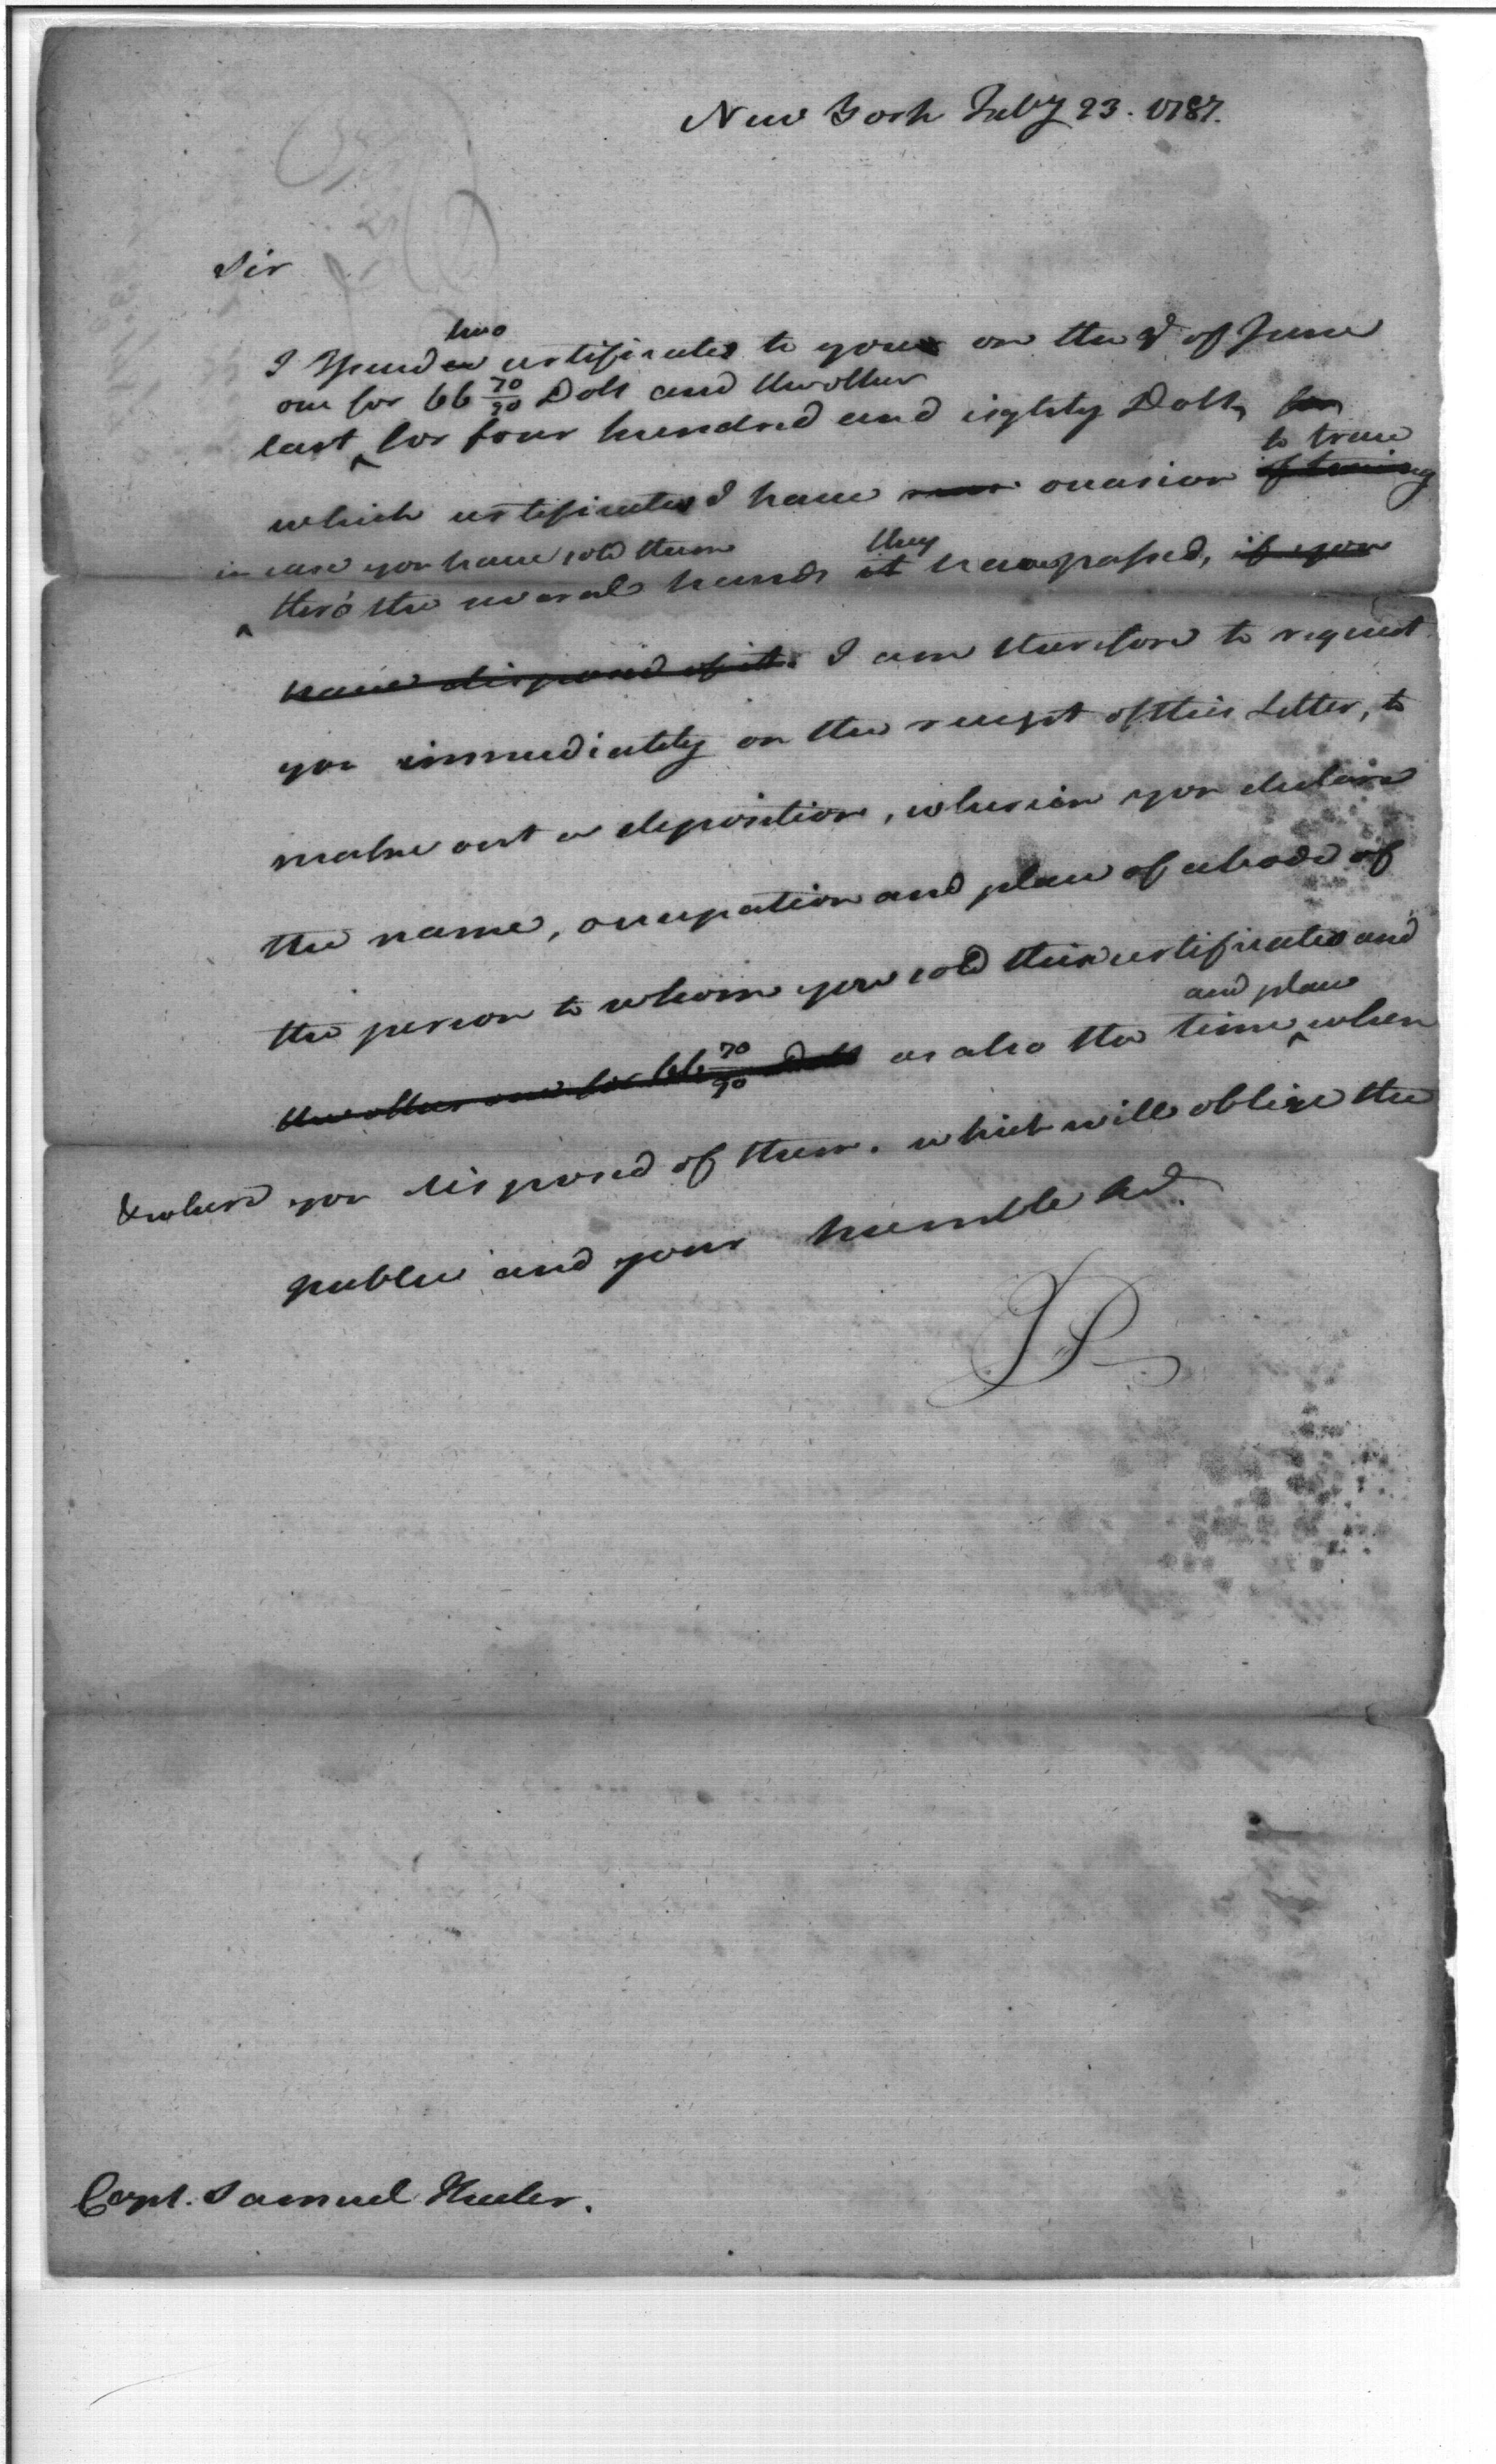 New York July 23. 1787.
Sir
two
I Issued a certificates to you on the 8 of June
one for 66 70/90 Dolls and the other
last for four hundred and eighty Dolls, for
to trace
which certificates I have occasion of tracing
in case you have sold them they
thro' the several hands it have passed, if you
have disposed of it. I am therefore to request
you immediately on the receipt of this Letter, to
make out a deposition, wherein you declare
the name, occupation and place of abode of
the person to whom you sold their certificates and
and place
the other one for 66 70/90 Dolls as also the time when
& where you disposed of them. which will oblige the
public and your humble
JP
Capt. Samuel